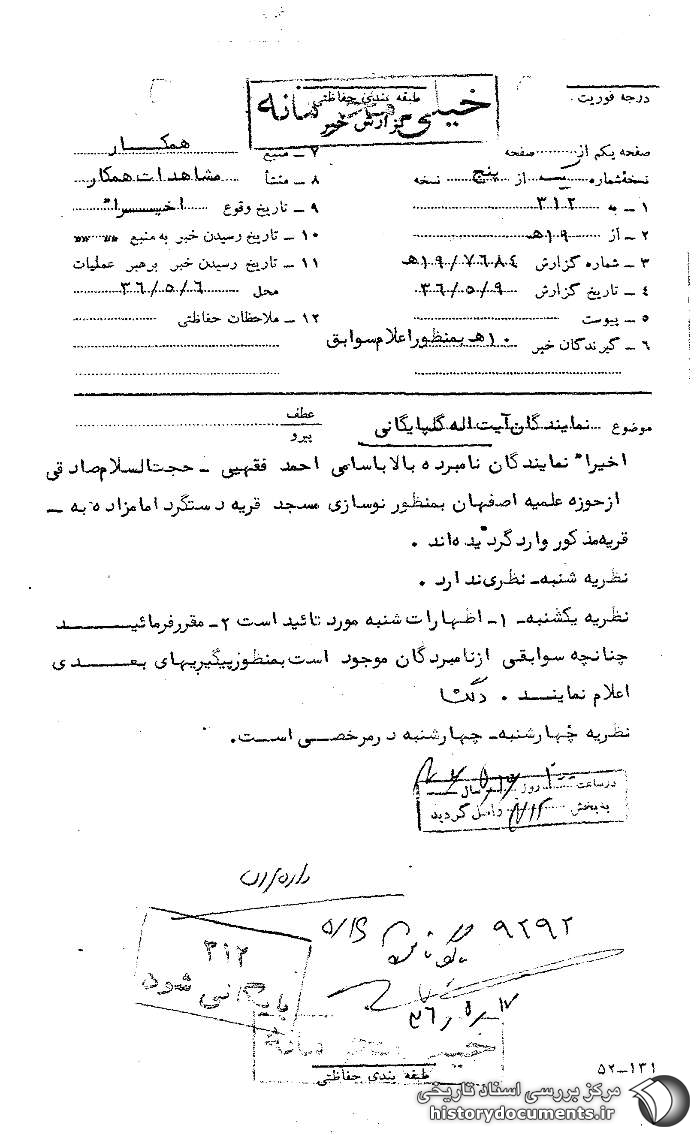 درجه فوریت
طبقه بندی حفاظتی
خیلی محرمانه
گزارش خبر
صفحه یکم از صفحه
نسخهٔ شماره یک از پنج نسخه
۱ ــ به ۳۱۲
۲ ــ از ۱۹هـ
۳ ــ شماره گزارش ۱۹/۷۶۸۴هـ
۴ ــ تاریخ گزارش ۳۶/۵/۹
۵ ــ پیوست
۶ ــ گیرندگان خبر ۱۰هـ بمنظور اعلام سوابق
۷ ــ منبع همکار
۸ ــ منشأ مشاهدات همکار
۹ ــ تاریخ وقوع اخیراً
۱۰ ــ تاریخ رسیدن خبر به منبع
۱۱ ــ تاریخ رسیدن خبر برهبر عملیات
محل ۳۶/۵/۶
۱۲ ــ ملاحظات حفاظتی
موضوع نمایندگان آیت اله گلپایگانی
عطف
پیرو
اخیراً نمایندگان نامبرده بالا باسامی احمد فقهیی ــ حجت السلام صادقی
از حوزه علمیه اصفهان بمنظور نوسازی مسجد قریه دستگرد امامزاده به ــ
قریه مذکور وارد گردیده اند .
نظریه شنبه ــ نظری ندارد .
نظریه یکشنبه ــ ۱ــ اظهارات شنبه مورد تائید است ۲ــ مقرر فرمائید
چنانچه سوابقی از نامبردگان موجود است بمنظور پیگیریهای بعدی
اعلام نمایند .
نظریه چهارشنبه ــ چهارشنبه در مرخصی است .
در ساعت روز سال
به بخش ۳۱۲ واصل گردید
۹۲۹۲
۳۱۲
بایگانی شود
۳۶/۵/۱۷
خیلی محرمانه
طبقه بندی حفاظتی
۵۲ــ۱۳۱
مرکز بررسی اسناد تاریخی
historydocuments.ir